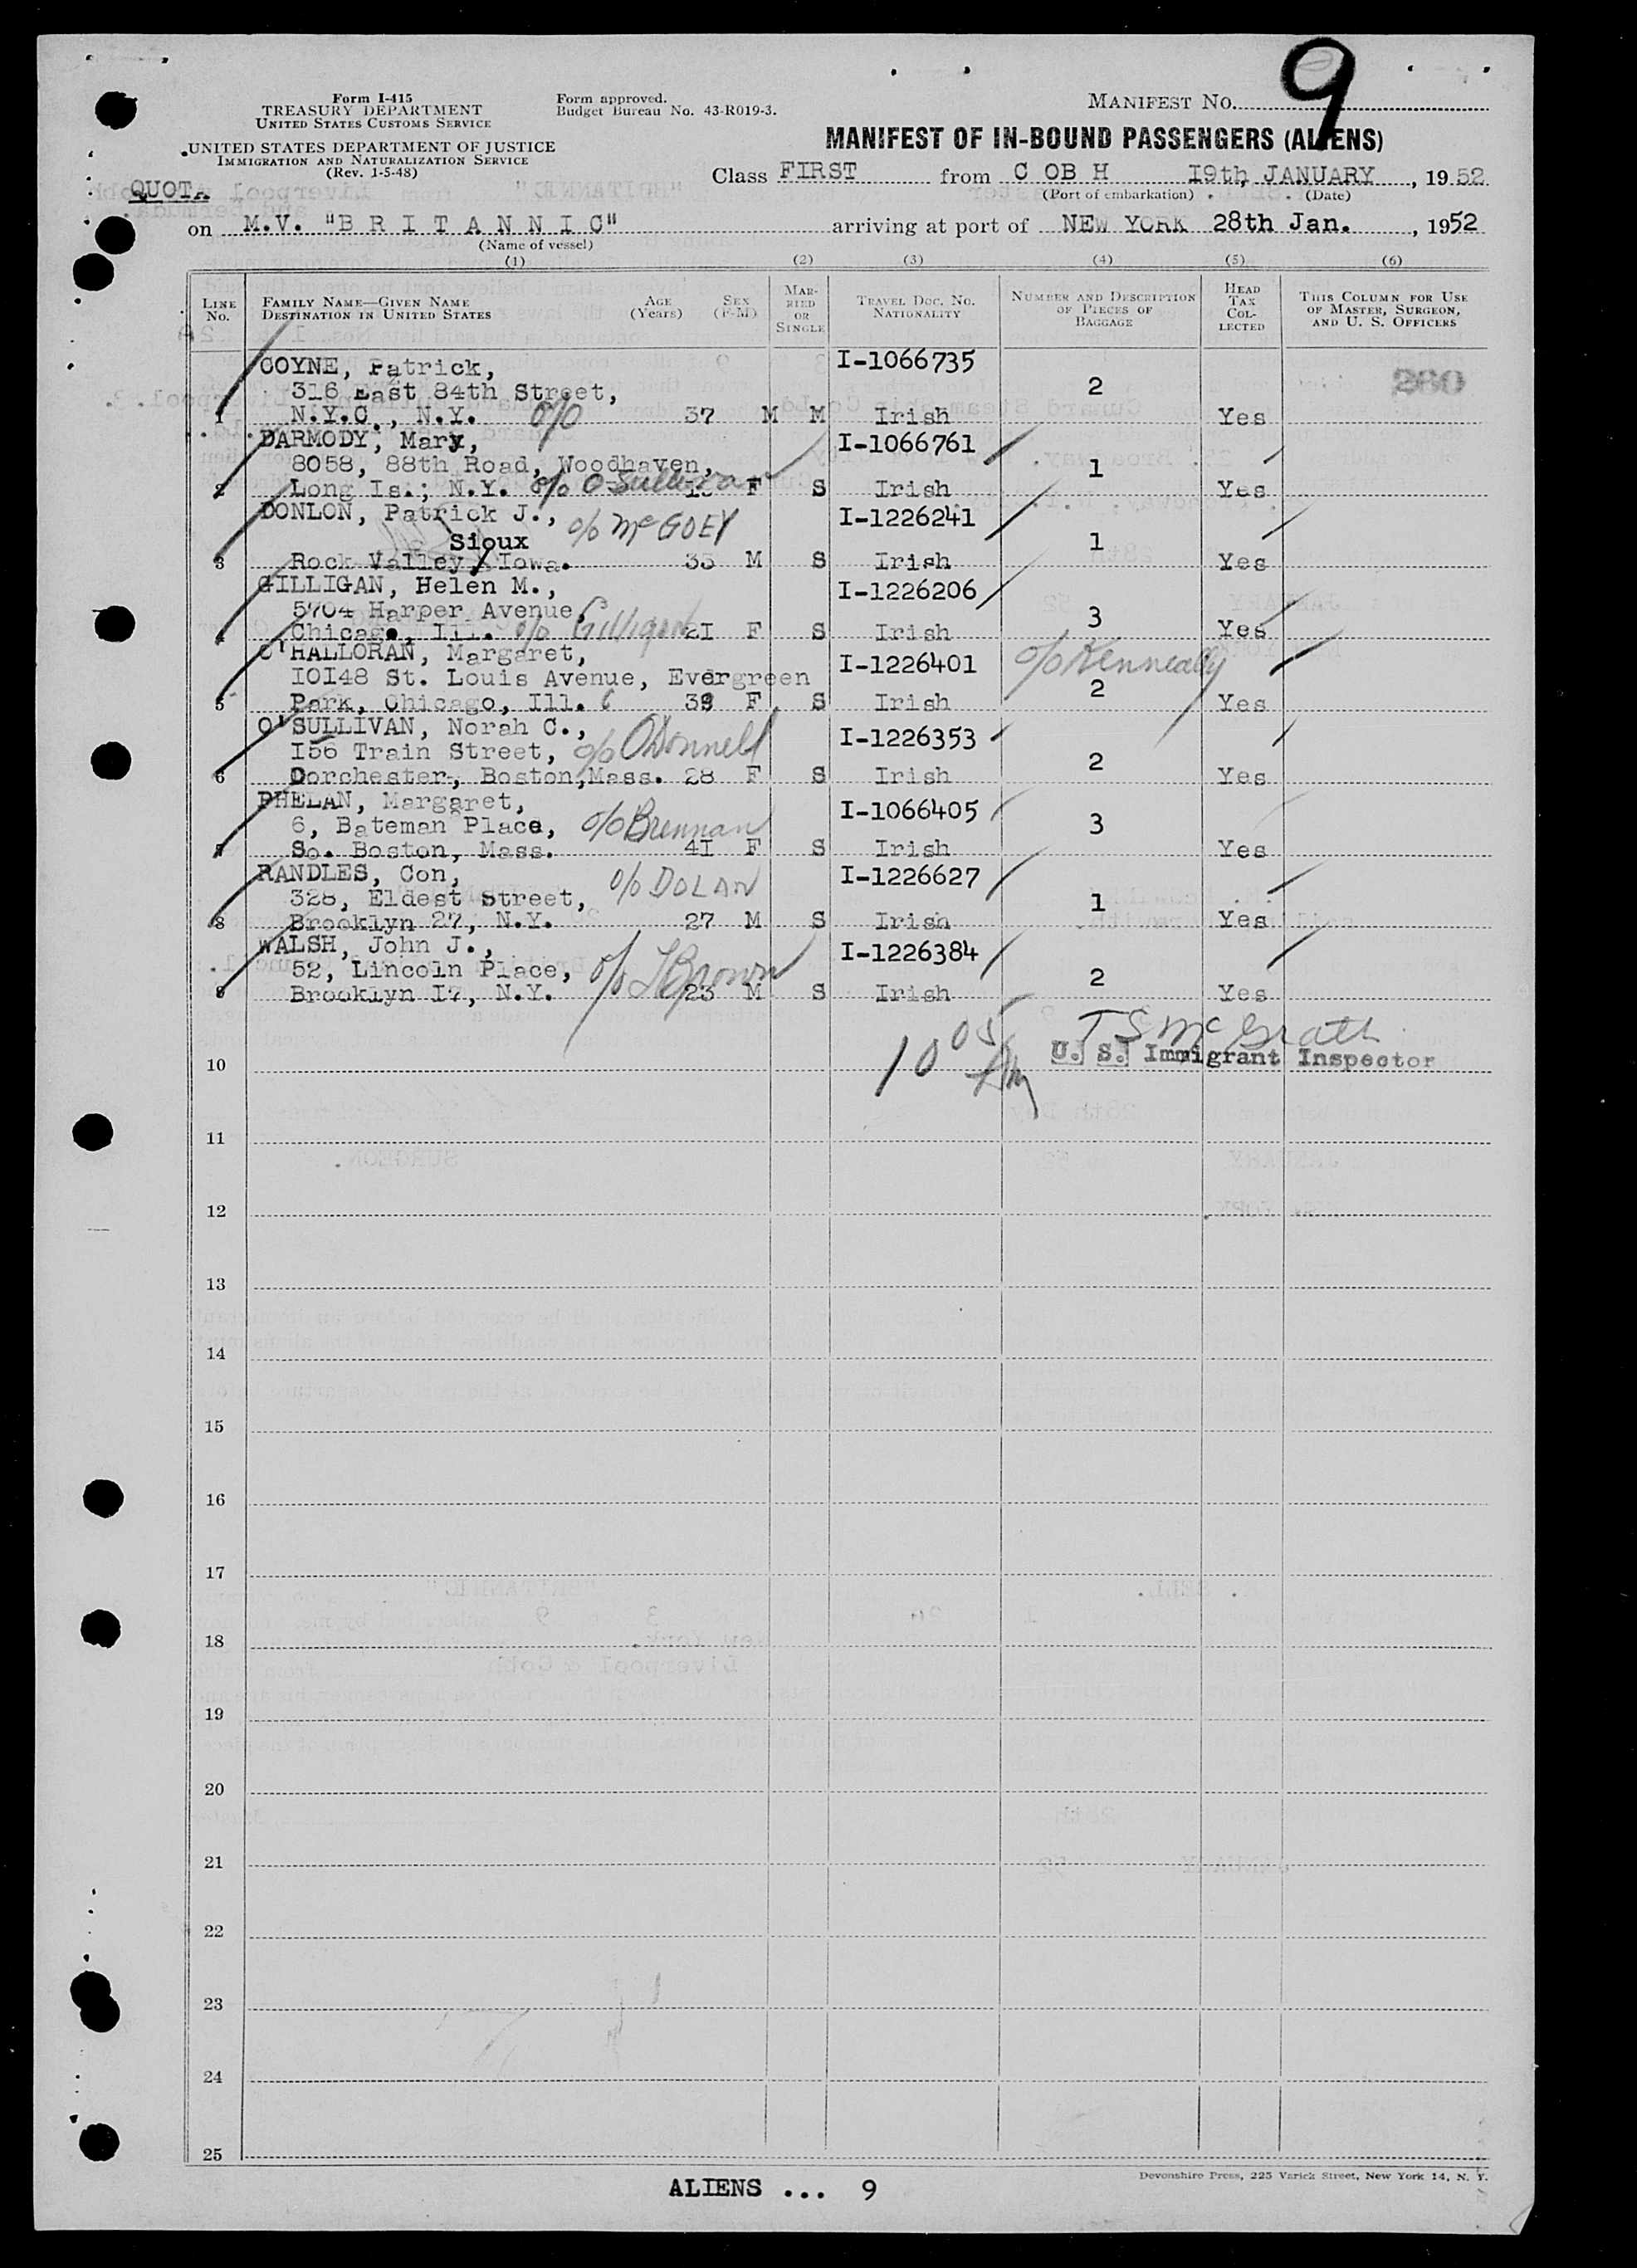 9
Form I-415
TREASURY DEPARTMENT
UNITED STATES CUSTOMS SERVICE
UNITED STATES DEPARTMENT OF JUSTICE
IMMIGRATION AND NATURALIZATION SERVICE
(Rev. 1-5-48)
Form approved.
Budget Bureau No. 43-R019-3.
MANIFEST NO.
MANIFEST OF IN-BOUND PASSENGERS (ALIENS)
QUOTA
Class FIRST from C OB H 19th JANUARY, 1952
(Port of embarkation) (Date)
on M.V. "B R I T A N N I C" arriving at port of NEW YORK 28th Jan., 1952
(Name of vessel)
(1) (2) (3) (4) (5) (6)
LINE No. FAMILY NAME—GIVEN NAME DESTINATION IN UNITED STATES AGE (Years) SEX (F-M) MARRIED OR SINGLE TRAVEL DOC. NO. NATIONALITY NUMBER AND DESCRIPTION OF PIECES OF BAGGAGE HEAD TAX COLLECTED THIS COLUMN FOR USE OF MASTER, SURGEON, AND U. S. OFFICERS
COYNE, Patrick, I-1066735 260
316 East 84th Street, 2
1 N.Y.C., N.Y. c/o 37 M M Irish Yes
DARMODY, Mary, I-1066761
8058, 88th Road, Woodhaven, 1
2 Long Is., N.Y. c/o O'Sullivan F S Irish Yes
DONLON, Patrick J., c/o McGOEY I-1226241
Sioux 1
3 Rock Valley, Iowa. 35 M S Irish Yes
GILLIGAN, Helen M., I-1226206
5704 Harper Avenue, 3
4 Chicago, Ill. c/o Gilligan 21 F S Irish Yes
O'HALLORAN, Margaret, I-1226401 c/o Kenneally
I0I48 St. Louis Avenue, Evergreen 2
5 Park, Chicago, Ill. F S Irish Yes
O'SULLIVAN, Norah C., I-1226353
I56 Train Street, c/o O'Donnell 2
6 Dorchester, Boston, Mass. 28 F S Irish Yes
PHELAN, Margaret, I-1066405
6, Bateman Place, c/o Brennan 3
7 So. Boston, Mass. 41 F S Irish Yes
RANDLES, Con, c/o DOLAN I-1226627
328, Eldest Street, 1
8 Brooklyn 27, N.Y. 27 M S Irish Yes
WALSH, John J., I-1226384
52, Lincoln Place, c/o Brown 2
9 Brooklyn I7, N.Y. 23 M S Irish Yes
10 05 AM T S McGrath
10 U. S. Immigrant Inspector
11
12
13
14
15
16
17
18
19
20
21
22
23
24
25
Devonshire Press, 225 Varick Street, New York 14, N. Y.
ALIENS ... 9